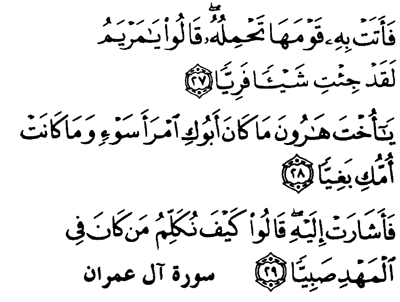 فَأَتَتْ بِهِۦ قَوْمَهَا تَحْمِلُهُۥۖ قَالُوا۟ يَـٰمَرْيَمُ
لَقَدْ جِئْتِ شَيْـًٔا فَرِيًّا ٢٧
يَـٰٓأُخْتَ هَـٰرُونَ مَا كَانَ أَبُوكِ ٱمْرَأَ سَوْءٍ وَمَا كَانَتْ
أُمُّكِ بَغِيًّا ٢٨
فَأَشَارَتْ إِلَيْهِۖ قَالُوا۟ كَيْفَ نُكَلِّمُ مَن كَانَ فِى
ٱلْمَهْدِ صَبِيًّا ٢٩ سورة آل عمران